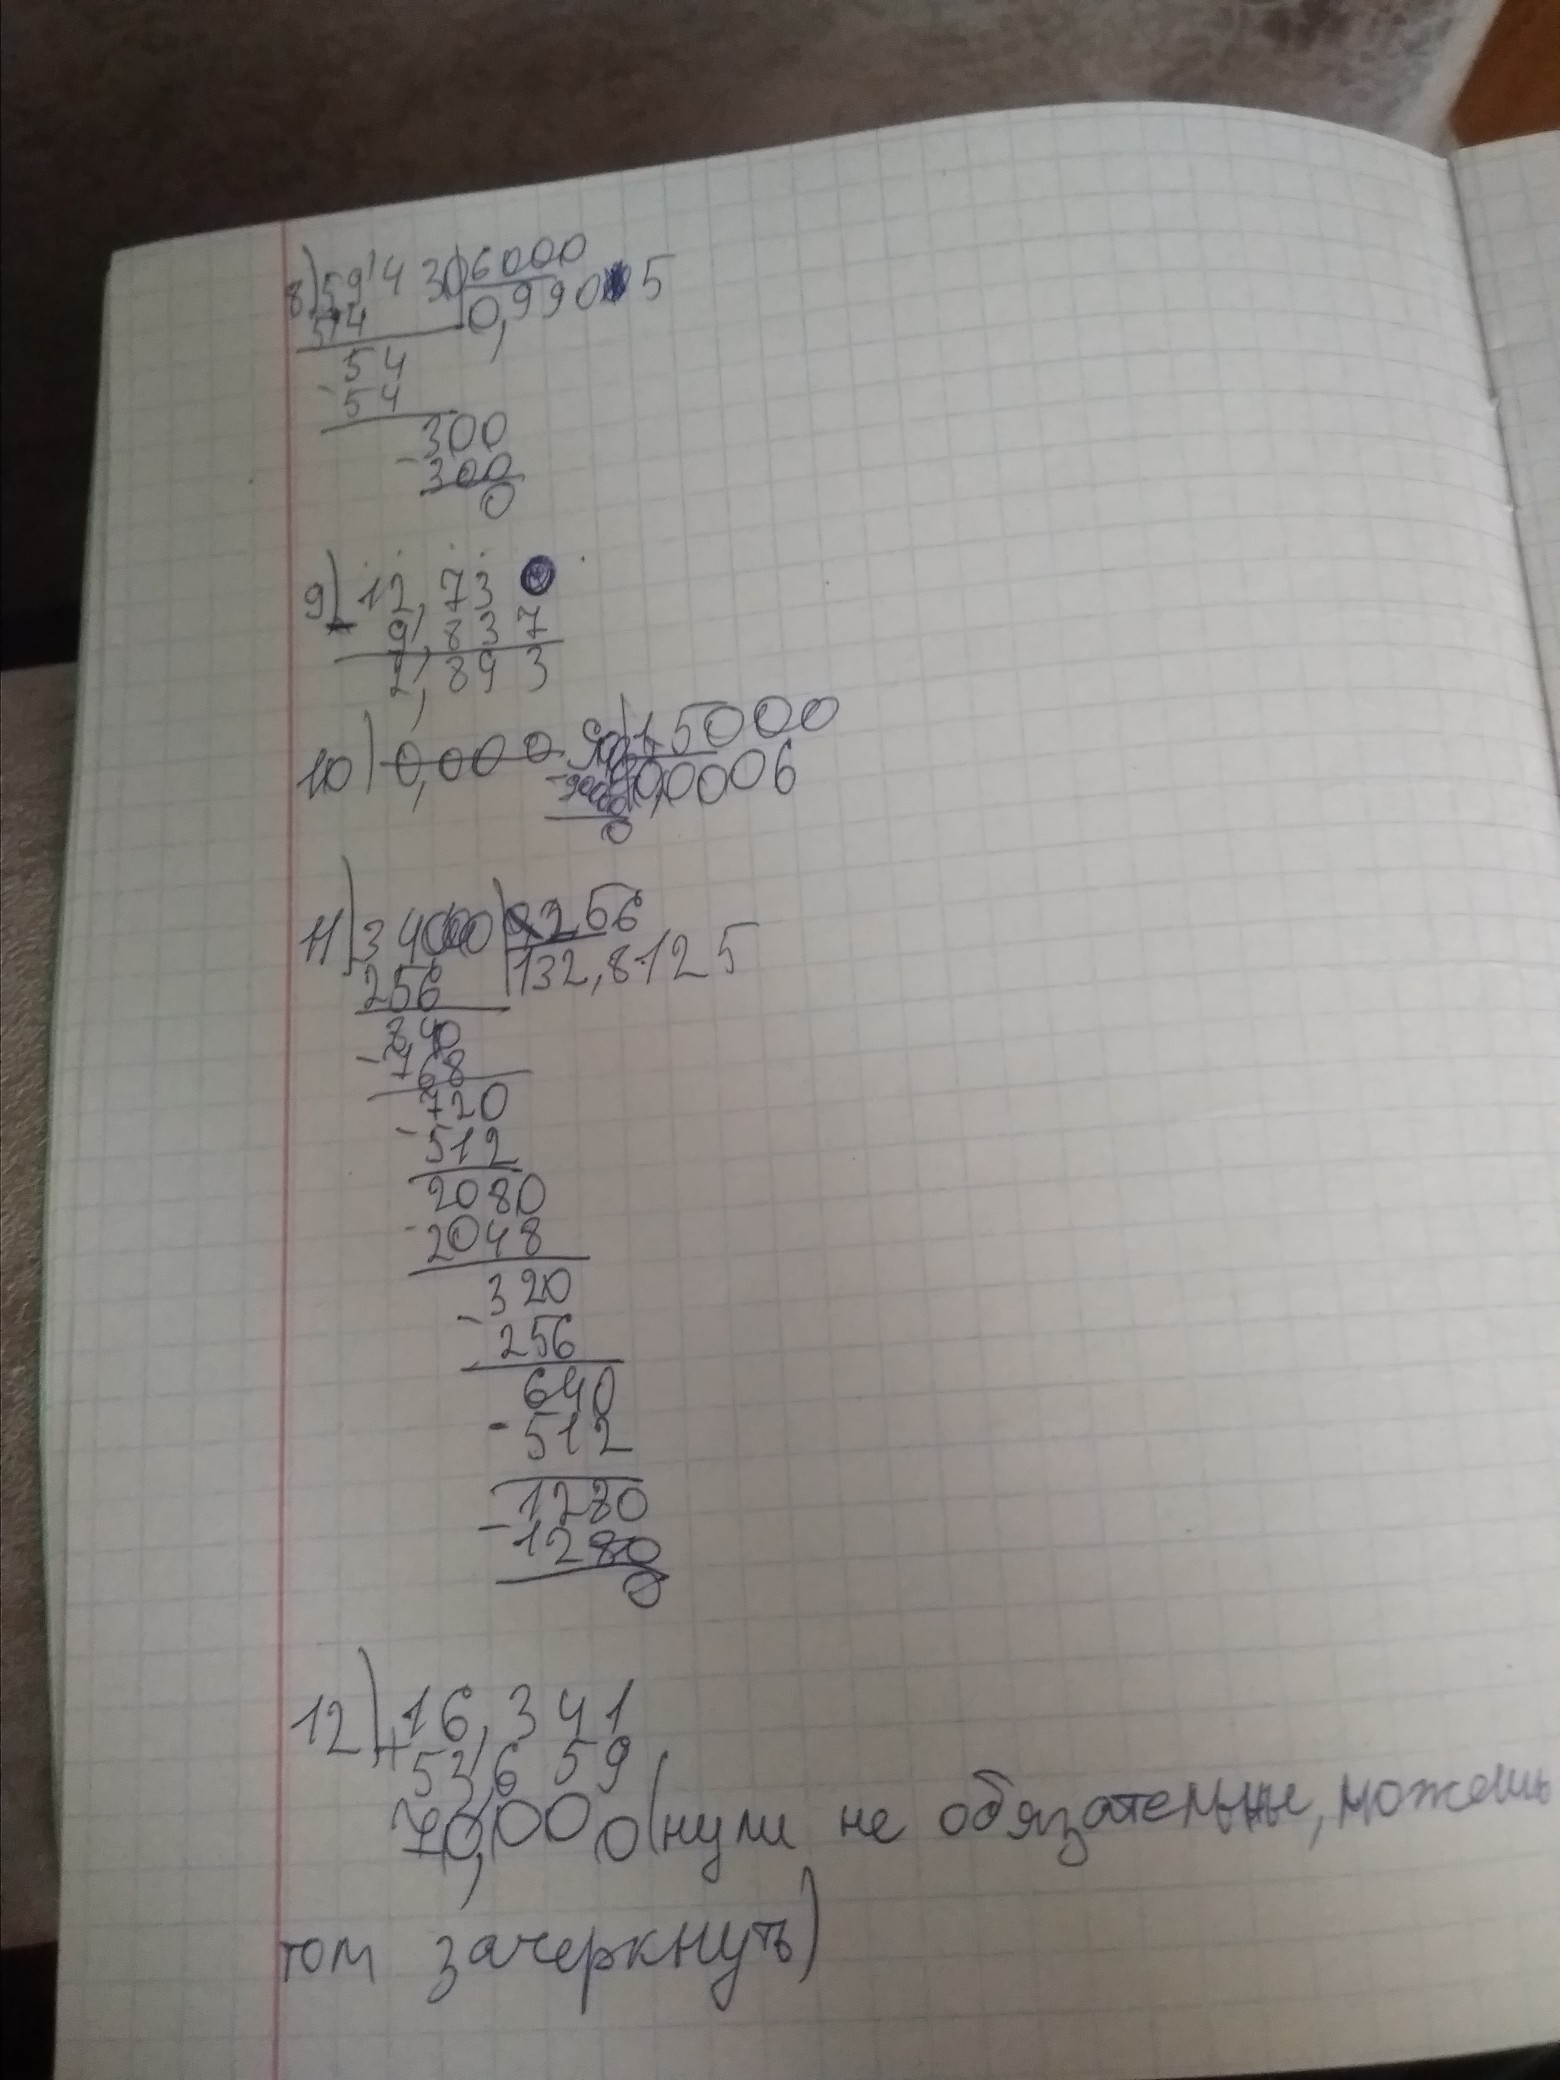 8) 59'4 30 6000
54 0,9905
- 54
54
300
- 300
0
9) - 12,73
9,837
2,893
10) 0,000 90 15000
- 90000 0,0006
0
11) 34000 256
256 132,8125
840
- 768
720
- 512
2080
- 2048
320
- 256
640
- 512
1280
- 1280
0
12) + 16,341
53,659
70,000 (нули не обязательны, можешь
том зачеркнуть)